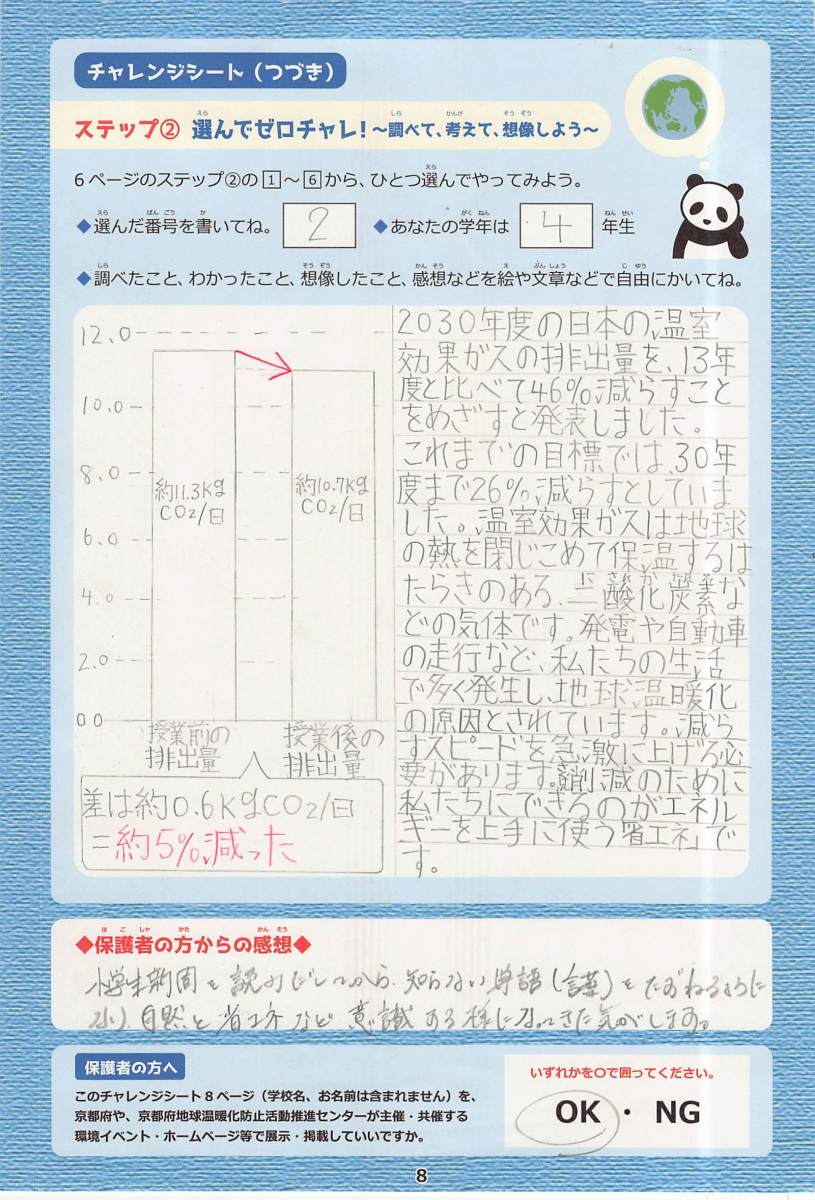 チャレンジシート(つづき)
ステップ② 選んでゼロチャレ!~調べて、考えて、想像しよう~
6ページのステップ②の1~6から、ひとつ選んでやってみよう。
◆選んだ番号を書いてね。 2 ◆あなたの学年は 4 年生
◆調べたこと、わかったこと、想像したこと、感想などを絵や文章などで自由にかいてね。
12.0
10.0
8.0
6.0
4.0
2.0
0.0
約11.3Kg
CO2/日
約10.7Kg
CO2/日
授業前の
排出量
授業後の
排出量
差は約0.6KgCO2/日
=約5%減った
2030年度の日本の温室
効果ガスの排出量を、13年
度と比べて46%減らすこと
をめざすと発表しました。
これまでの目標では、30年
度まで26%減らすとしていま
した。温室効果ガスは地球
の熱を閉じこめて保温するは
たらきのある、二酸化炭素な
どの気体です。発電や自動車
の走行など、私たちの生活
で多く発生し、地球温暖化
の原因とされています。減ら
すスピードを急激に上げる必
要があります。削減のために
私たちにできるのがエネル
ギーを上手に使う「省エネ」で
す。
◆保護者の方からの感想◆
小学生新聞を読みだしてから、知らない単語(言葉)をたずねるように
なり、自然と省エネなど意識する様になってきた気がします。
保護者の方へ
このチャレンジシート8ページ(学校名、お名前は含まれません)を、
京都府や、京都府地球温暖化防止活動推進センターが主催・共催する
環境イベント・ホームページ等で展示・掲載していいですか。
いずれかを○で囲ってください。
OK ・ NG
8